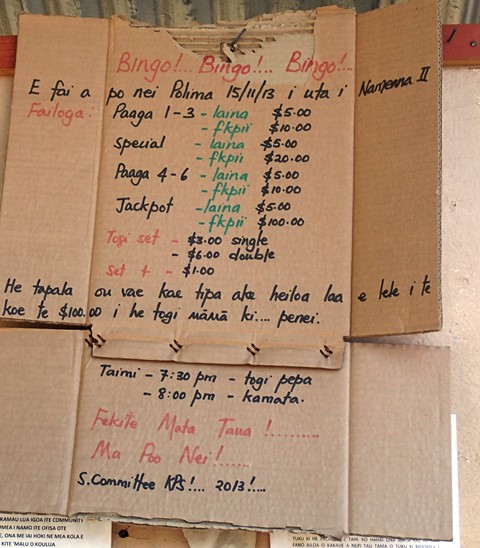 Bingo!.. Bingo!... Bingo!...
E fai a po nei Palima 15/11/13 i uta i Namena II
Failoga: Paaga 1-3 - laina $5.00
- fkpii $10.00
Special - laina $5.00
- fkpii $20.00
Paaga 4-6 - laina $5.00
- fkpii $10.00
Jackpot - laina $5.00
- fkpii $100.00
Togi set - $3.00 single
- $6.00 double
Set + - $1.00
He tapala ou vae kae tipa ake heiloa laa e lele i te
koe te $100.00 i he togi māmā ki.... penei.
Taimi - 7:30 pm - togi pepa
- 8:00 pm - kamata.
Fekite Mata Taua!.........
Ma Poo Nei!......
S. Committee KPS!... 2013!....
KAMAU LUA IGOA ITE COMMUNITY
OMEA I NAMO ITE OFISA OTE
E, ONA ME IAI HOKI NE MEA KOLA E
KITE 'MALU O KOULUA.